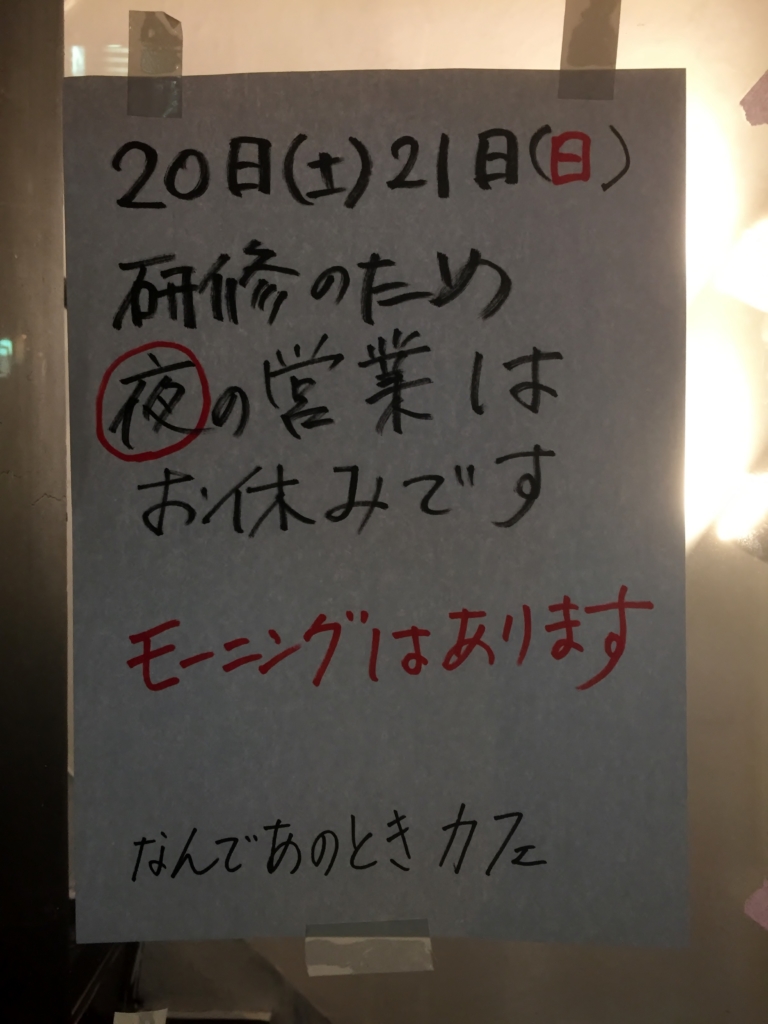 20日(土)21日(日)
研修のため
夜の営業は
お休みです
モーニングはあります
なんであのとき カフェ